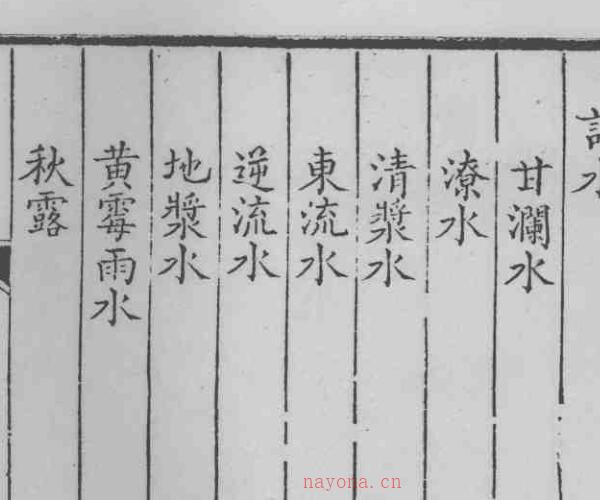 水
甘瀾水
潦水
清漿水
東流水
逆流水
地漿水
黄霉雨水
秋露
nayona.cn